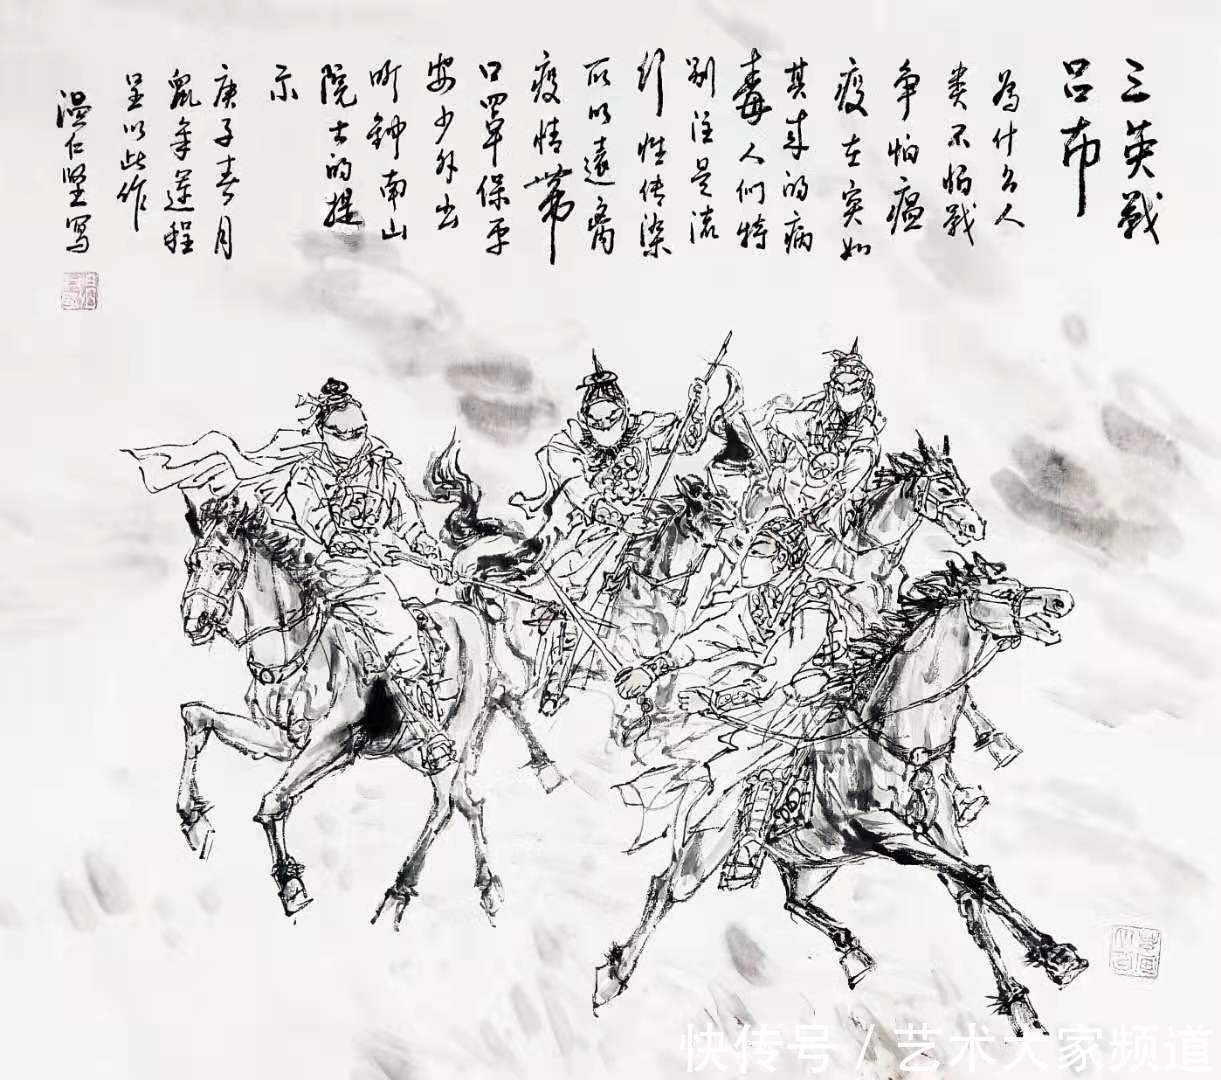 三英战
吕布
为什么人
类不怕战
争怕瘟
疫在突如
其来的病
毒人们特
别注是流
行性传染
所以远离
疫情带
口罩保平
安少外出
听钟南山
院士的提
示
庚子春月
鼠年运程
呈以此作
温仁坚写
快传号 / 艺术大家频道